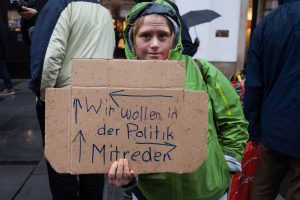 Wir wollen in
der Politik
Mitreden